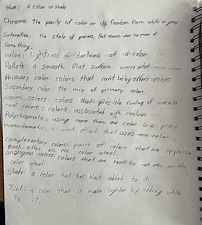 Hues: a color or shade
Chroma: the purity of color or its freedom from white or gray
Saturation: the state of process that occurs when no more of
Something.
value: lightness or darkness of a color
Pallete: a Smooth flat surface were artist
Primary color: colors that cant be by others colors
Secondary color: the mix of primary colors.
warm colors: colors that the feeling of warmth
cool colors: colors associated with
Polychromatic: using more than one color in a piece
monochromatic: a work of art that uses one hue.
complementary colors: pairs of colors that are opposite
each other on the color wheel.
analogous colors: colors that are next to each other on the
color wheel.
Shade: a color that has black added to it.
Tint: a color that is made lighter by adding white
to it.